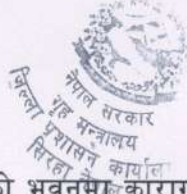 नेपाल सरकार
गृह मन्त्रालय
जिल्ला प्रशासन कार्यालय
सिरहा
भवनमा